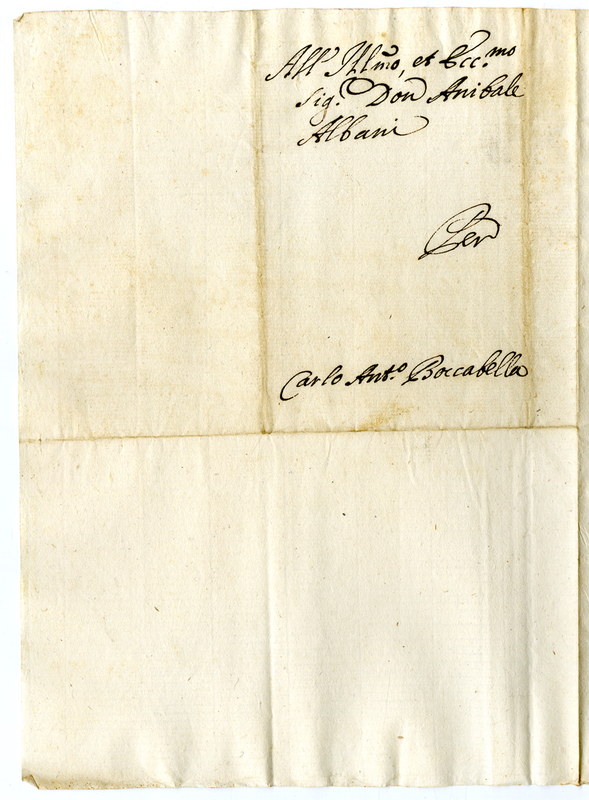 All' Ill.mo, et Ecc.mo
Sig.r Don Anibale
Albani
Per
Carlo Ant.o Boccabella